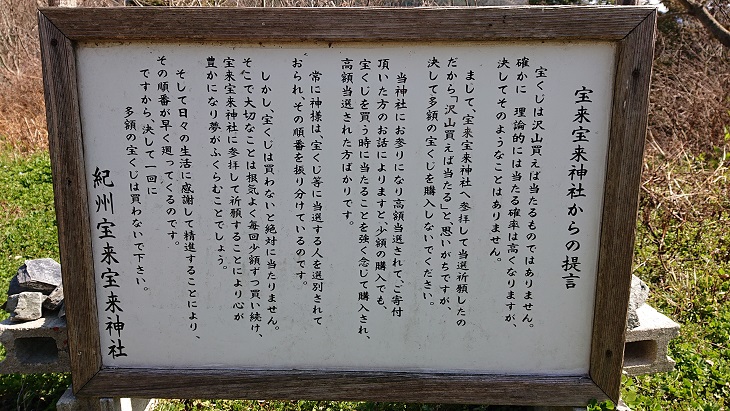 宝来宝来神社からの提言
宝くじは沢山買えば当たるものではありません。
確かに 理論的には当たる確率は高くなりますが、
決してそのようなことはありません。
まして、宝来宝来神社へ参拝して当選祈願したの
だから「沢山買えば当たること」と、思いがちですが
決して多額の宝くじを購入しないでください。
当神社にお参りになり高額当選されて、ご寄付
頂いた方のお話によりますと、「少額の購入でも、
宝くじを買う時に当たることを強く念じて購入され、
高額当選された方ばかりです。
常に神様は、宝くじ等に当選する人を選別されて
おられ、その順番を振り分けているのです。
しかし、宝くじは買わないと絶対に当たりません。
そこで大切なことは根気よく毎回少額ずつ買い続け、
宝来宝来神社に参拝して祈願することにより心が
豊かになり夢がふくらむことでしょう。
そして日々の生活に感謝して精進することにより、
その順番が早く廻ってくるのです。
ですから、決して一回に
多額の宝くじは買わないで下さい。
紀州宝来宝来神社